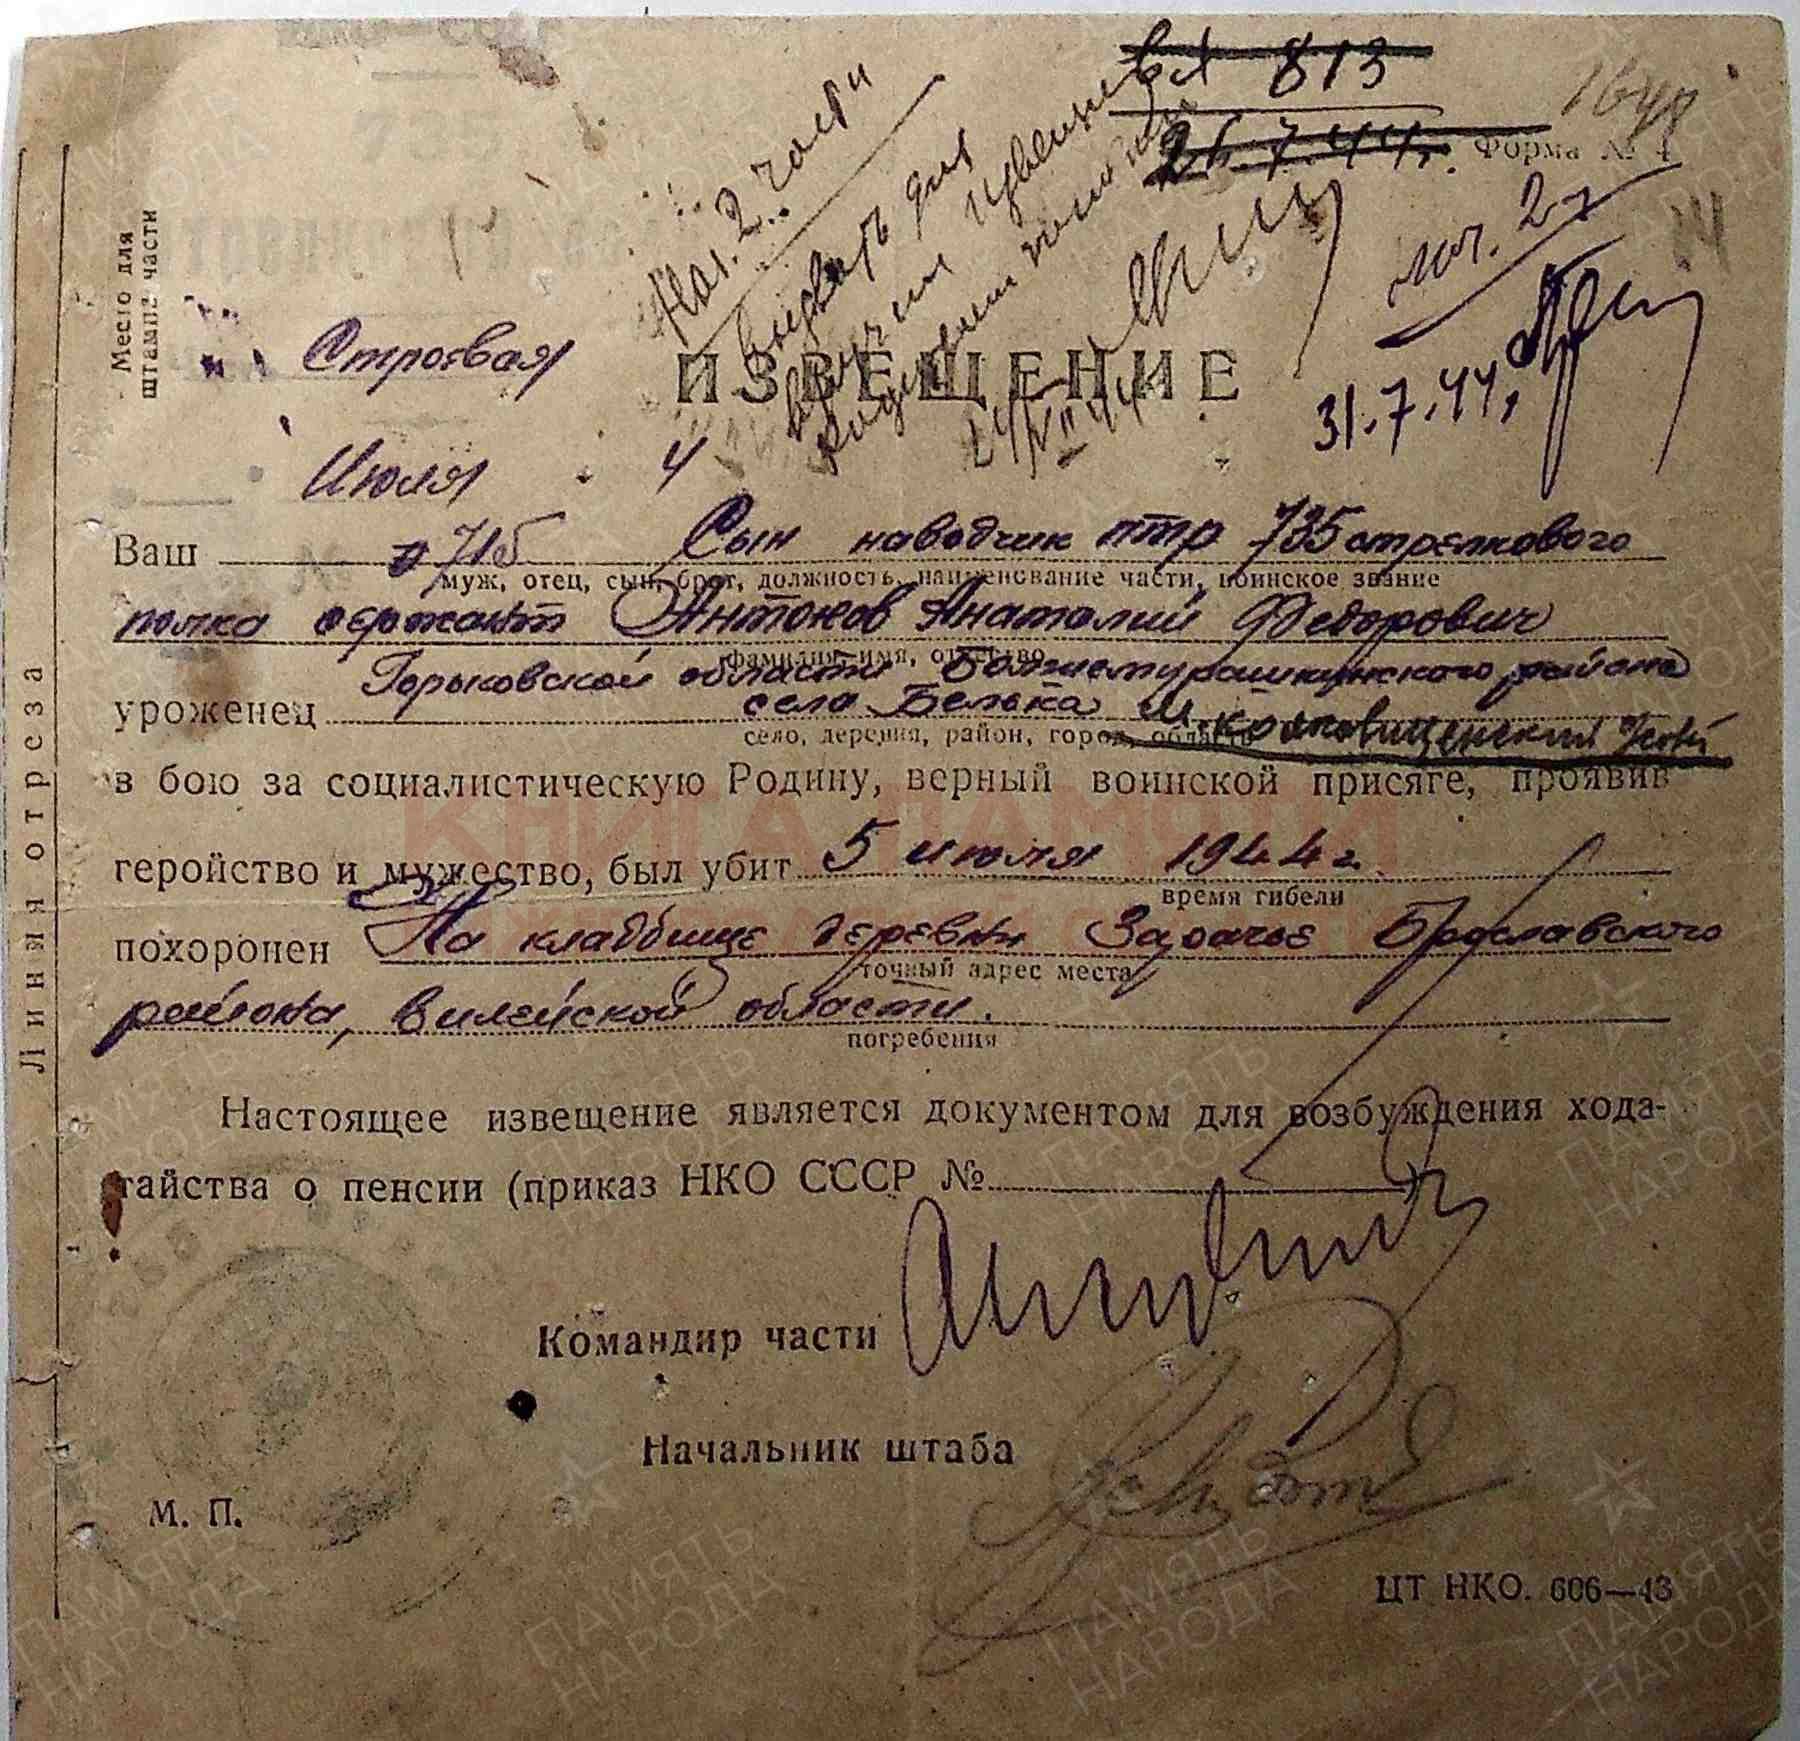 вх 813
26.7.44.
Форма № 4
Нач. 2 части
Вызвать для
вручения извещения
Родителям
24/VII 44
исп. 2ч
31.7.44,
Место для
штампа части
Строевая
ИЗВЕЩЕНИЕ
Июля 4
№ 716
Ваш Сын наводчик птр 735 стрелкового
муж, отец, сын, брат, должность, наименование части, воинское звание
полка сержант Антонов Анатолий Федорович
фамилия, имя, отчество
Горьковской области Большемурашкинского района
уроженец село Белька
село, деревня, район, город, область
в бою за социалистическую Родину, верный воинской присяге, проявив
геройство и мужество, был убит 5 июля 1944 г.
время гибели
похоронен На кладбище деревни Зарачье Браславского
точный адрес места
района, Вилейской области.
погребения
Настоящее извещение является документом для возбуждения хода-
тайства о пенсии (приказ НКО СССР №
Командир части
Начальник штаба
М. П.
ЦТ НКО. 606—43
Линия отреза
КНИГА ПАМЯТИ
ПАМЯТЬ НАРОДА